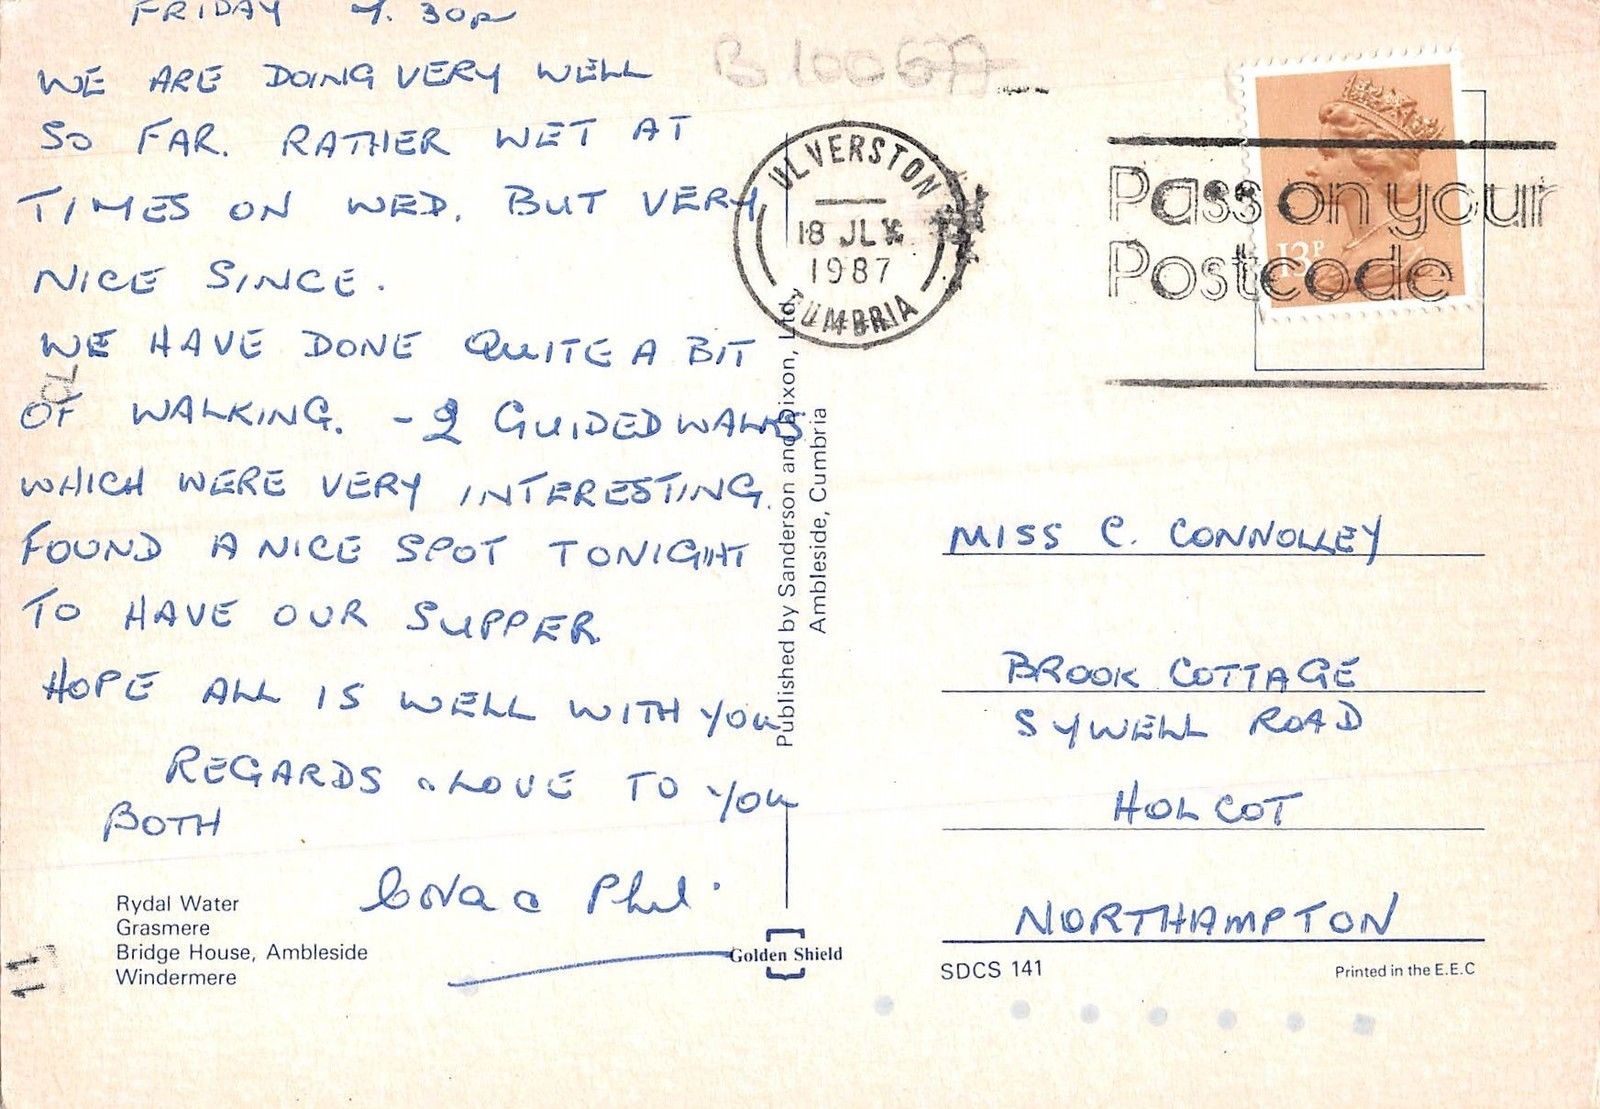 FRIDAY 7.30p
WE ARE DOING VERY WELL
SO FAR. RATHER WET AT
TIMES ON WED. BUT VERY
NICE SINCE.
WE HAVE DONE QUITE A BIT
OF WALKING. - 2 GUIDED WALKS
WHICH WERE VERY INTERESTING.
FOUND A NICE SPOT TONIGHT
TO HAVE OUR SUPPER
HOPE ALL IS WELL WITH YOU
REGARDS & LOVE TO YOU
BOTH
Phil.
Rydal Water
Grasmere
Bridge House, Ambleside
Windermere
11
Published by Sanderson and Dixon, Ltd.,
Ambleside, Cumbria
Golden Shield
B100677
ULVERSTON
18 JL
1987
CUMBRIA
Pass on your
Postcode
13P
MISS C. CONNOLLEY
BROOK COTTAGE
SYWELL ROAD
HOLCOT
NORTHAMPTON
SDCS 141
Printed in the E.E.C